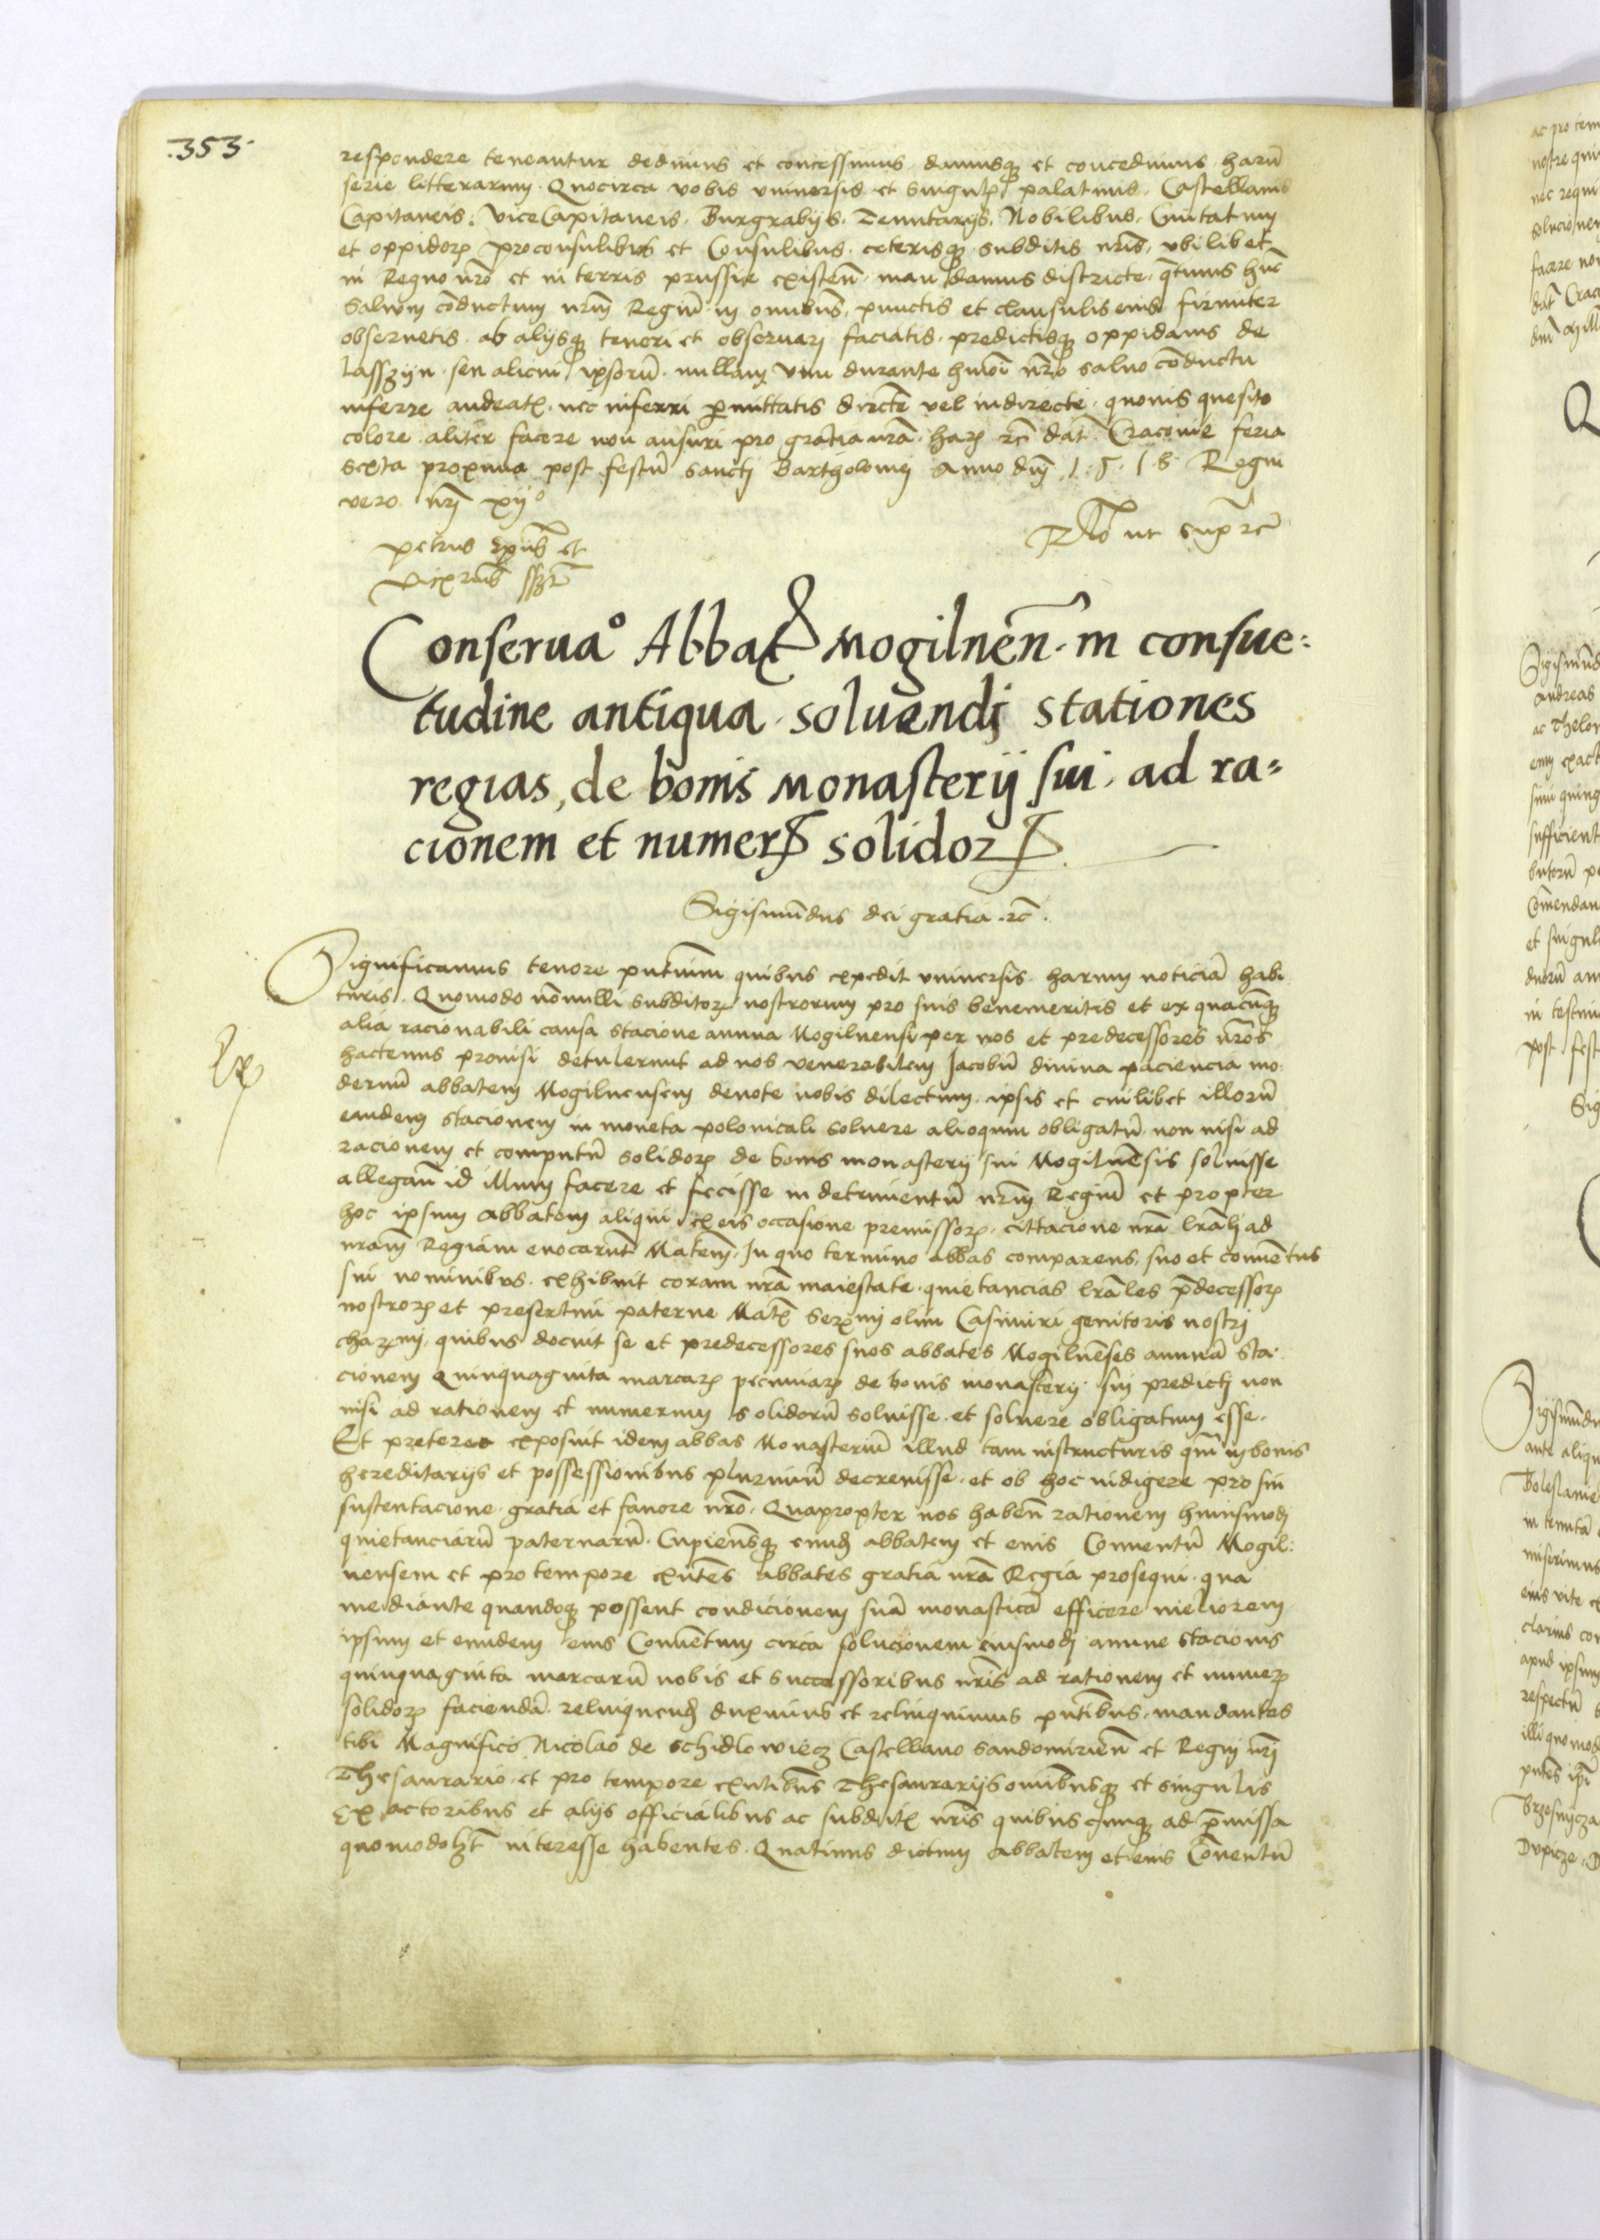 .353.
respondere teneantur dedimus et concessimus damusqȝ et concedimus harũ
serie litterarum. Quocirca vobis vniuersis et singulis palatinis, Castellanis
Capitaneis, ViceCapitaneis, Burgrabijs, Tenutarijs, Nobilibus, Ciuitatum
et oppidorꝫ proconsulibus et Consulibus ceterisqȝ subditis nr̃is, vbilibet
in Regno nr̃o et in terris prussie existeñ mandamus districte, q̃tinus hũc
saluum cõductum nr̃m Regiũ in omnibus, punctis et clausulis eius firmiter
obseruetis ab alijsqȝ teneri et obseruari faciatis, predictisqȝ oppidanis de
Lasszyn seu alicui ipsorũ nullam vim durante hmõi nr̃o saluo cõductu
inferre audeatis nec inferri p̱mittatis directe vel indirecte quouis quesito
colore aliter facere non ausuri pro gratia nr̃a harꝫ rc̃ dat̃ Cracouie feria
sexta proxima post festũ sancti Bartholomej Anno dñj 1.5.18 Regni
vero nr̃j xijº
Petrus ep̃us et
vicecancellarius sszt
Rlõ ut sup̱ rc̃
Conseruaº Abbat Mogilneñ. in consue:
tudine antiqua soluendj stationes
regias, de bonis Monasterij sui, ad ra=
cionem et numerꝝ solidoꝝ
Sigismũdus dei gratia rc̃.
Significamus tenore pñtium quibus expedit vniuersis harum noticiã habi
turis. Quomodo nõnulli subditorꝫ nostrorum pro suis benemeritis et ex quacũqȝ
alia racionabili causa stacione annua Mogilnensi per nos et predecessores nr̃os
hactenus prouisi detulerunt ad nos venerabilem Jacobũ diuina paciencia mo
dernũ abbatem Mogilnensem deuote nobis dilectum, ipsis et cuilibet illorũ
eandem stacionem in moneta polonicali soluere alioquin obligatũ non nisi ad
racionem et computũ solidorꝫ de bonis monasterij sui Mogilnẽsis soluisse
allegañ id illum facere et fecisse in detrimentũ nr̃m Regiũ et propter
hoc ipsum abbatem aliqui ex eis occasione premissorꝫ cittacione nr̃a lr̃ali ad
nram̃ Regiam euocarunt Mat̃em. In quo termino abbas comparens, suo et conuẽtus
sui nominibus exhibuit coram nr̃a maiestate quietancias lr̃ales p̃decessorꝫ
nostrorꝫ et presertim paterne Mat̃is Serꝫmi olim Casimiri genitoris nostrj
charꝫmi, quibus docuit se et predecessores suos abbates Mogilnẽses annuã sta
cionem quinquaginta marcarꝫ pecuniarꝫ de bonis monasterij sui predictj non
nisi ad rationem et numerum solidorũ soluisse et soluere obligatum esse.
Et preterea exposuit idem abbas Monasteriũ illud tam in structuris qm̃ in bonis
hereditarijs et possessionibus plurimũ decreuisse et ob hoc indigere pro sui
sustentacione gratia et fauore nr̃o. Quapropter nos habeñ rationem huiusmodj
quietanciarũ paternarũ. Cupiensqȝ eundẽ abbatem et eius Conuentũ Mogil:
nensem et pro tempore exñtes abbates gratia nr̃a Regia prosequi qua
mediante quandoqȝ possent condicionem suã monasticã efficere meliorem
ipsum et eundem eius Conuentum circa solucionem eiusmodj annue stacionis
quinquaginta marcarũ nobis et successoribus nr̃is ad rationem et numerꝫ
solidorꝫ faciendã relinquendũ duximus et relinquimus pñtibus, mandantes
tibi Magnifico Nicolao de Schidlowiecz Castellano Sandomirieñ et Regni nr̃j
Thesaurario et pro tempore exñtibus Thesaurarijs omnibusqȝ et singulis
Exactoribus et alijs officialibus ac subditis nr̃is quibuscunqȝ ad p̃missa
quomodolȝt interesse habentes. Quatinus dictum abbatem et eius Cõuentũ